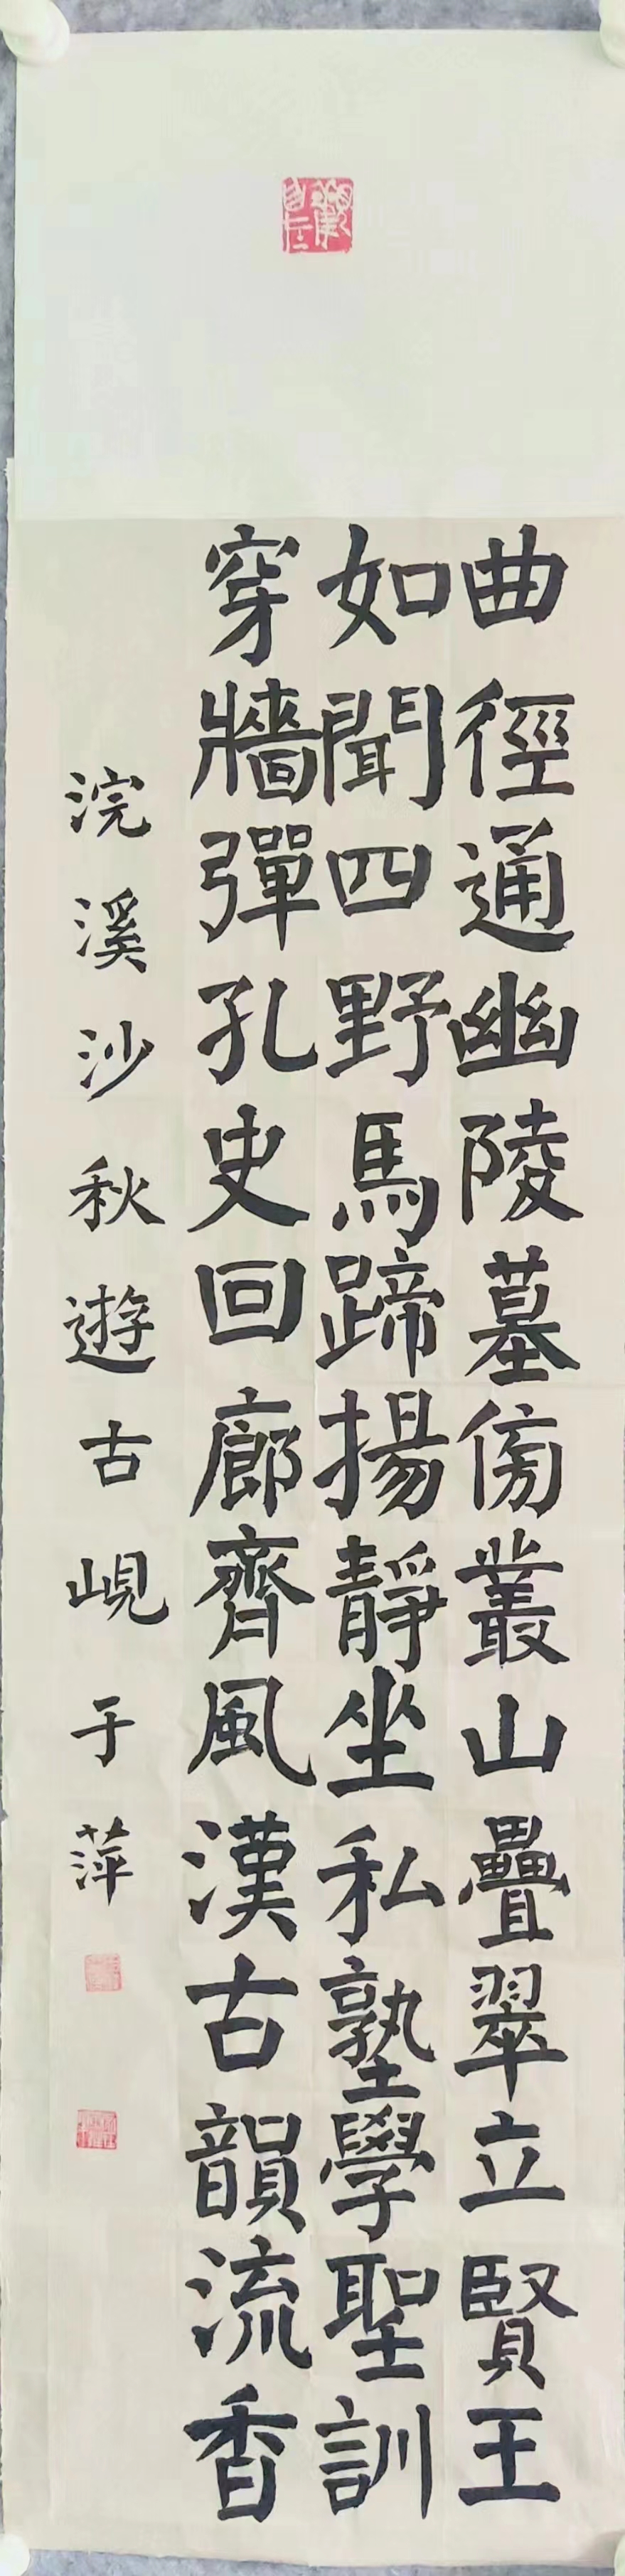 曲徑通幽陵墓傍叢山疊翠立賢王
如聞四野馬蹄揚靜坐私塾學聖訓
穿牆彈孔史回廊齊風漢古韻流香
浣溪沙秋遊古峴于萍